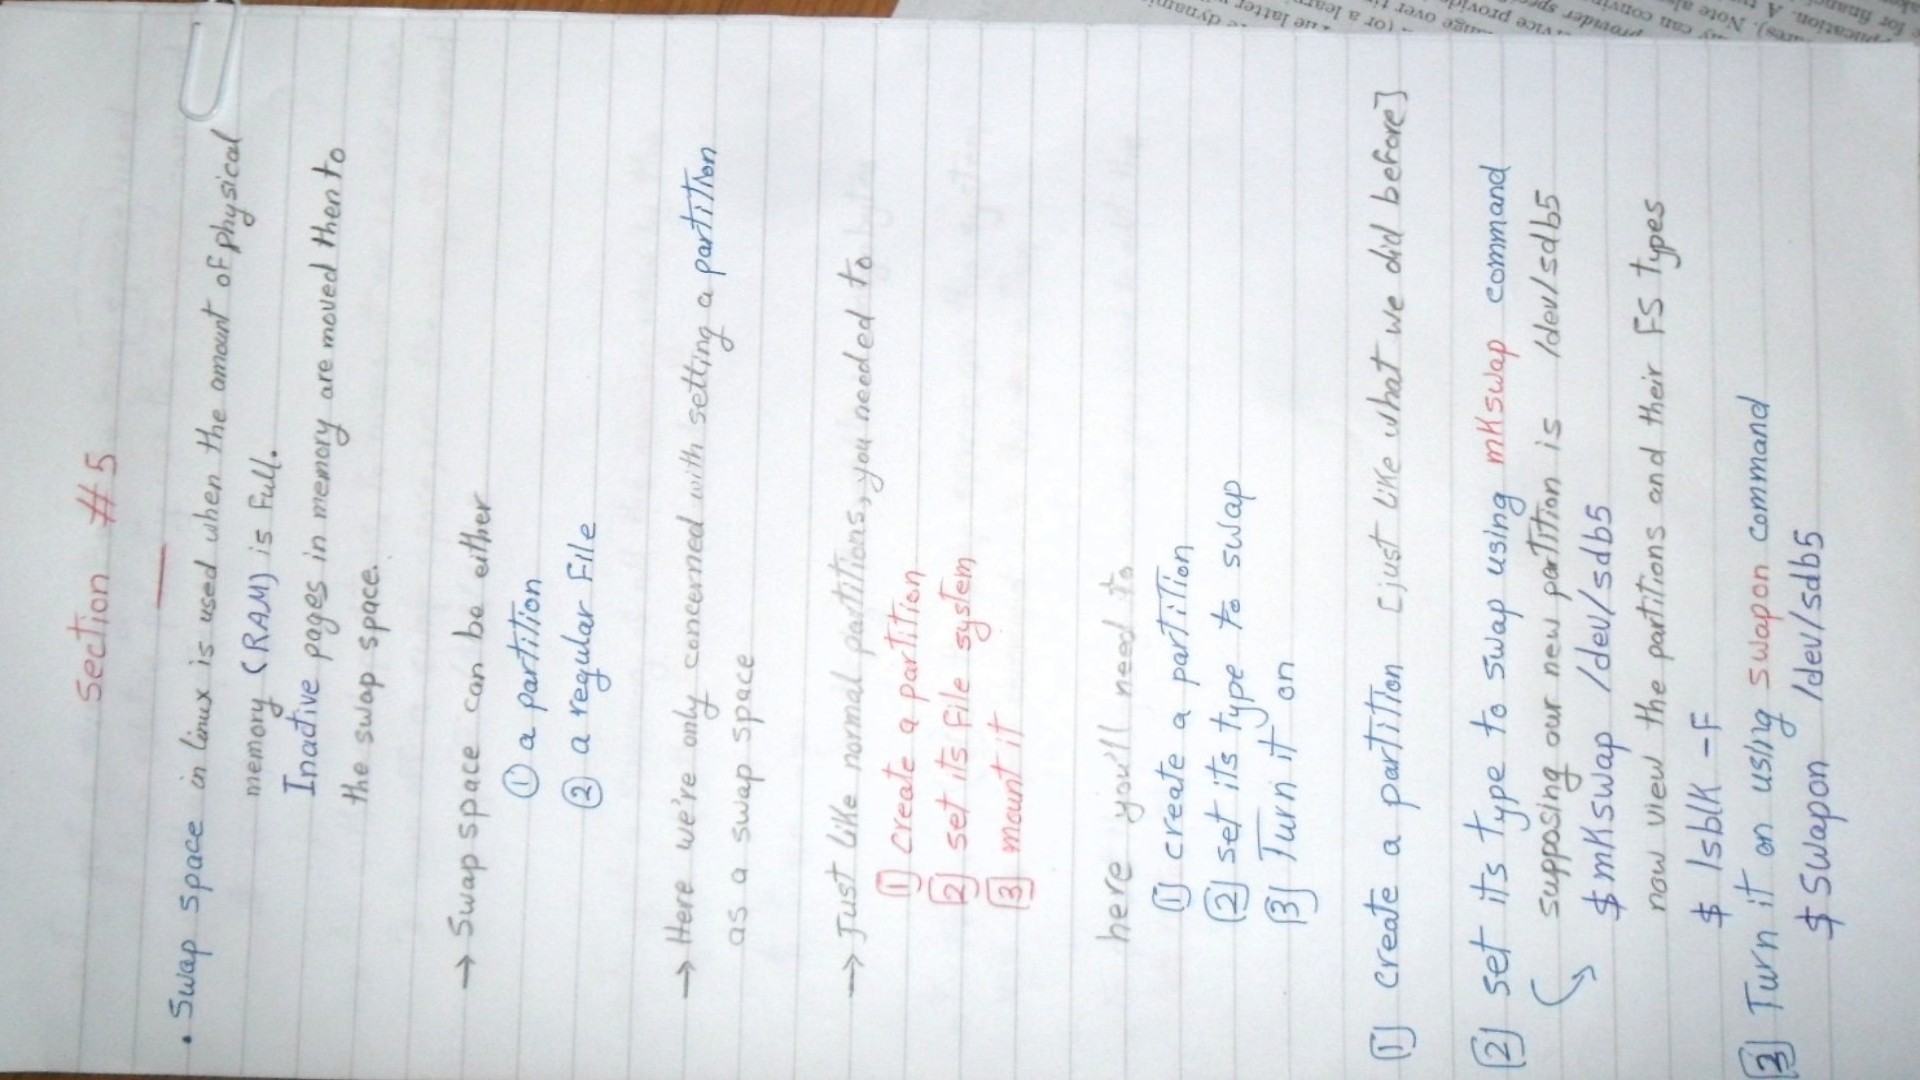 Section #5
. Swap space in linux is used when the amount of physical
memory (RAM) is full.
Inactive pages in memory are moved then to
the swap space.
→ Swap space can be either
① a partition
② a regular File
→ Here we're only concerned with setting a partition
as a swap space
→ Just like normal partitions, you needed to
[1] create a partition
[2] set its file system
[3] mount it
here you'll need to
[1] create a partition
[2] set its type to swap
[3] Turn it on
[1] create a partition [just like what we did before]
[2] set its type to swap using mkswap command
supposing our new partition is /dev/sdb5
$ mkswap /dev/sdb5
now view the partitions and their FS types
$ lsblk -F
[3] Turn it on using swapon command
$ Swapon /dev/sdb5